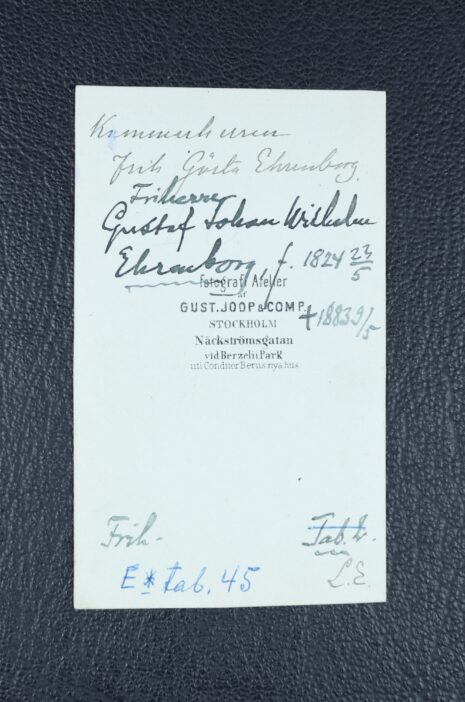 Kammarherren
Frih Gösta Ehrenborg.
Friherre
Gustaf Johan Wilhelm
Ehrenborg, f. 1824 23/5
Fotografi Atelier
af
GUST. JOOP & COMP.
STOCKHOLM
† 1883 9/5
Näckströmsgatan
vid Berzelii Park
uti Conditor Berns nya hus
Frih-
Tab.
L.E.
E * tab. 45